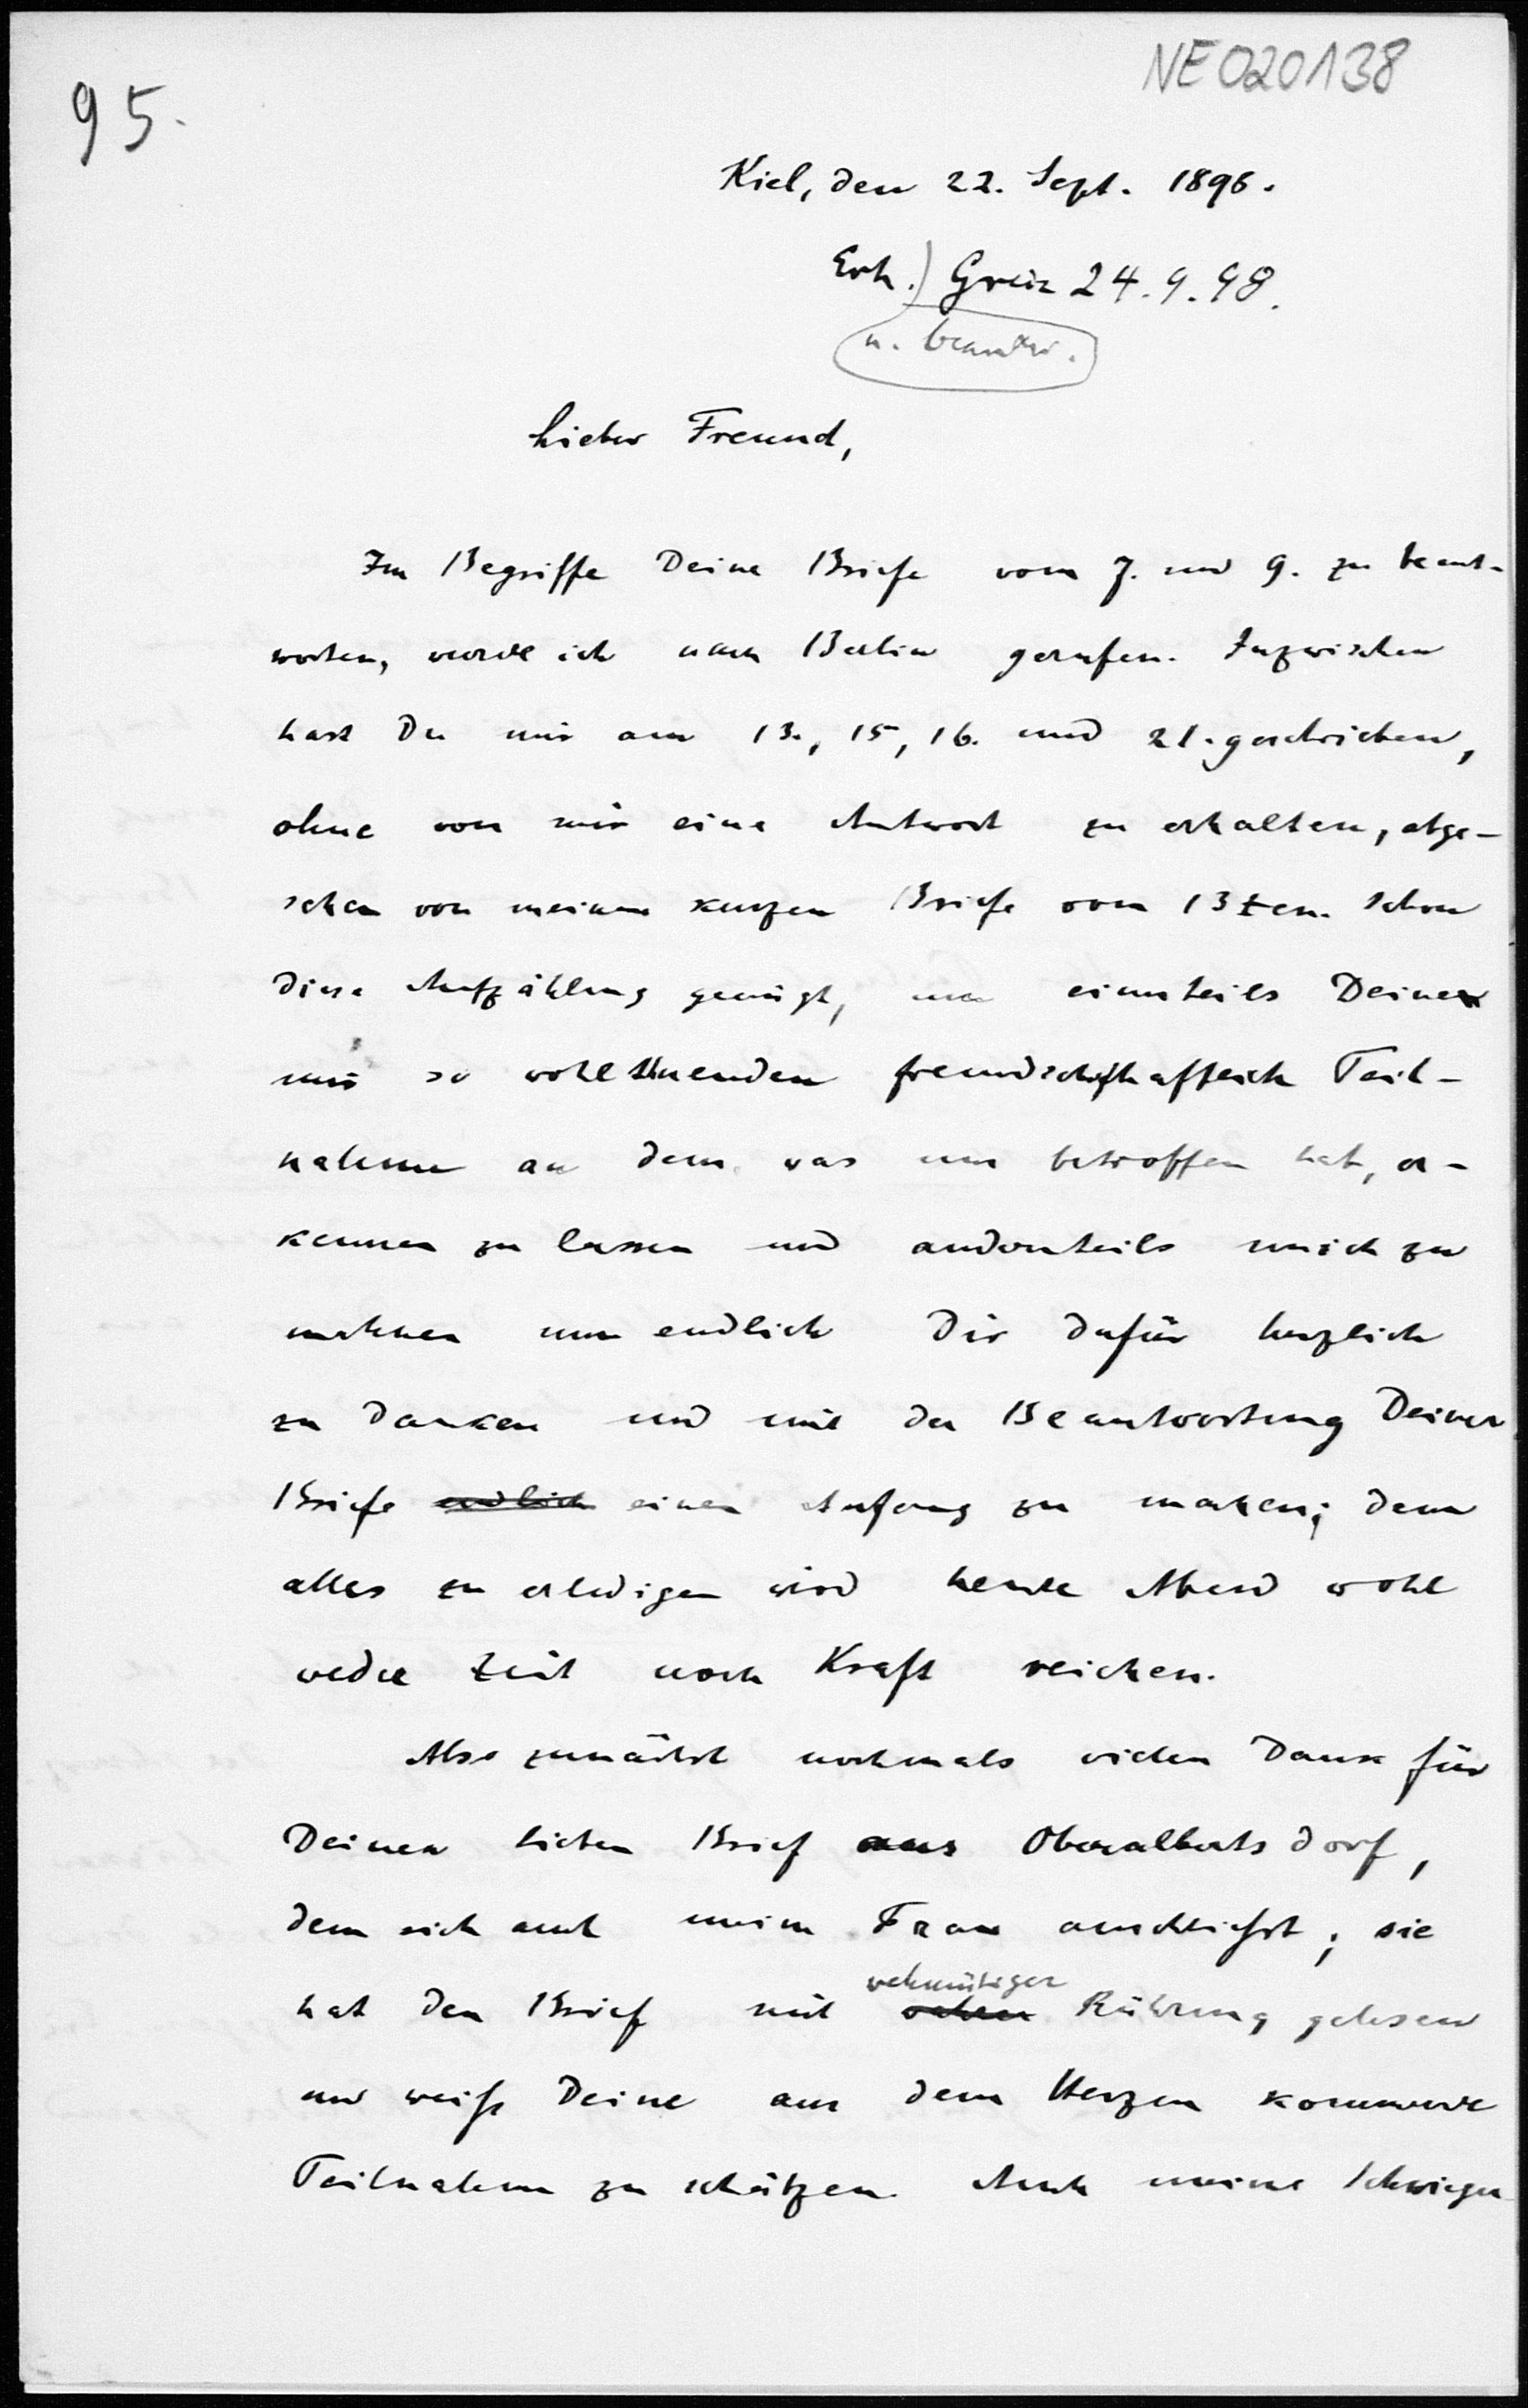 NE020138
95.
Kiel, den 22. Sept. 1896.
Erh.) Greiz 24.9.98.
u. beantw.
Lieber Freund,
Im Begriffe Deine Briefe vom 7. und 9. zu beant-
worten, wurde ich nach Berlin gerufen. Inzwischen
hast Du mir am 13., 15, 16. und 21. geschrieben,
ohne von mir eine Antwort zu erhalten, abge-
sehen von meinem kurzen Briefe vom 13ten. Schon
diese Aufzählung genügt, um einesteils Deine
mir so wohlthuenden freundschaftlich Teil-
nahme an dem, was uns betroffen hat, er-
kennen zu lassen und andernteils mich zu
mahnen nun endlich Dir dafür herzlich
zu danken und mit der Beantwortung Deiner
Briefe endlich einen Anfang zu machen; denn
alles zu erledigen wird heute Abend wohl
weder Zeit noch Kraft reichen.
Also zunächst nochmals vielen Dank für
Deinen lieben Brief aus Oberalbertsdorf,
dem sich auch meine Frau anschliesst; sie
wehmütiger
hat den Brief mit Rührung gelesen
und weiss Deine aus dem Herzen kommende
Teilnahme zu schätzen. Auch meine Schwieger-